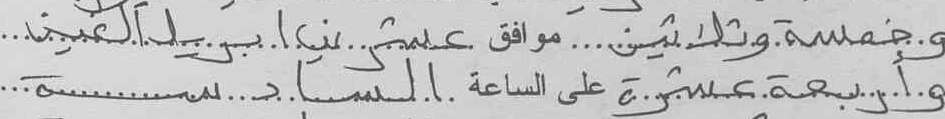 و خمسة وثلاثين ... موافق عشرين ابريل ألفين ...
و أربعة عشرة على الساعة السادسة ...